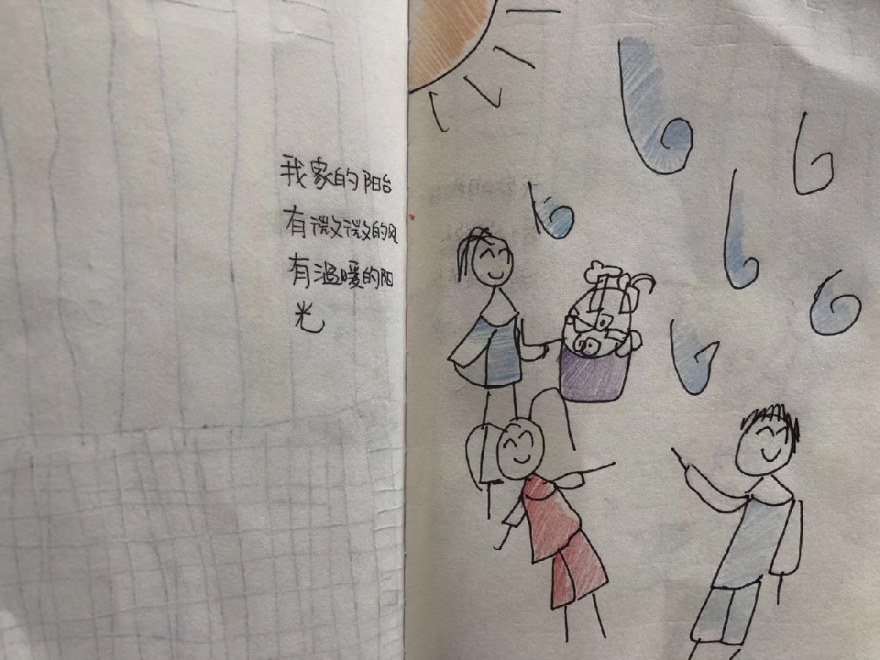 我家的阳台
有微微的风
有温暖的阳
光